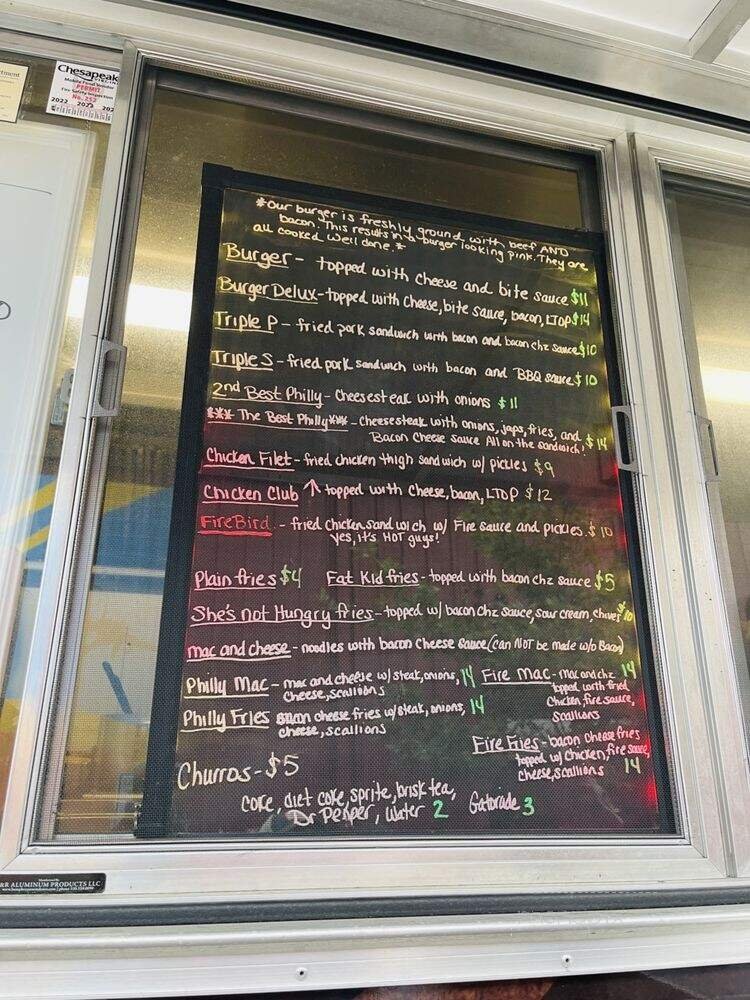 rtment
Chesapeake
Mobile Food Vendor
PERMIT
Fire Safety Inspection
No. 252
2022 2023 202
*Our burger is freshly ground, with beef AND
bacon. This results in a burger looking pink. They are
all cooked well done.*
Burger - topped with cheese and bite sauce $11
Burger Delux - topped with cheese, bite sauce, bacon, LTOP $14
Triple P - fried pork sandwich with bacon and bacon chz sauce $10
Triple S - fried pork sandwich with bacon and BBQ sauce $10
2nd Best Philly - Cheesesteak with onions $11
*** The Best Philly *** - Cheesesteak with onions, japs, fries, and $14
Bacon Cheese sauce All on the sandwich!
Chicken Filet - fried chicken thigh sandwich w/ pickles $9
Chicken Club ↑ topped with cheese, bacon, LTOP $12
FireBird - fried chicken sandwich w/ Fire sauce and pickles. $10
Yes, it's HOT guys!
Plain fries $4 Fat Kid fries - topped with bacon chz sauce $5
She's not Hungry fries - topped w/ bacon chz sauce, sour cream, chives $10
mac and cheese - noodles with bacon cheese sauce (can NOT be made w/o Bacon)
Philly Mac - mac and cheese w/ steak, onions, 14
cheese, scallions
Fire Mac - mac and chz 14
topped with fried
chicken, fire sauce,
scallions
Philly Fries bacon cheese fries w/ steak, onions, 14
cheese, scallions
Fire Fries - bacon cheese fries
topped w/ chicken, fire sauce,
cheese, scallions 14
Churros - $5
coke, diet coke, sprite, brisk tea,
Dr Pepper, water 2 Gatorade 3
R ALUMINUM PRODUCTS LLC